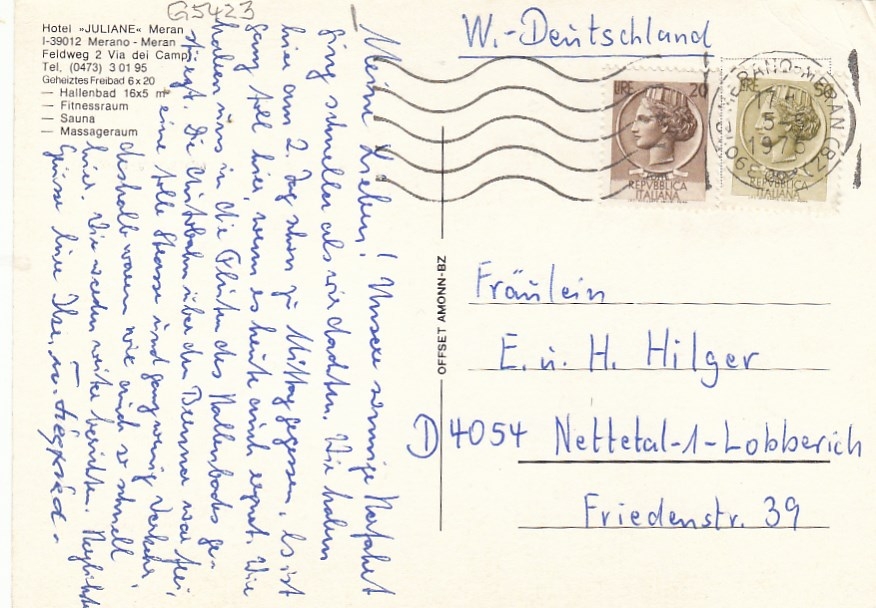 G5423
Hotel »JULIANE« Meran
I-39012 Merano - Meran
Feldweg 2 Via dei Campi
Tel. (0473) 3 01 95
Geheiztes Freibad 6 x 20
— Hallenbad 16x5 m
— Fitnessraum
— Sauna
— Massageraum
Meine Lieben! Unsere sonnige Herfahrt
ging schneller als wir dachten. Wir haben
hier am 2. Tag schon zu Mittag gegessen. Es ist
ganz toll hier, wenn es heute auch regnet. Wir
haben uns in die Fluten des Hallenbads ge-
stürzt. Die Autobahn über den Brenner war frei,
eine tolle Strasse und ganz wenig Verkehr,
deshalb waren wir auch so schnell
hier. Wir werden weiter berichten. Herzlichst
Grüsse Eure Ilse, u. Siegfried -
OFFSET AMONN-BZ
W.-Deutschland
LIRE 20
REPVBBLICA
ITALIANA
LIRE 50
REPVBBLICA
ITALIANA
MERANO-MERAN (BZ)
1976
Fräulein
E. u. H. Hilger
D 4054 Nettetal-1-Lobberich
Friedenstr. 39